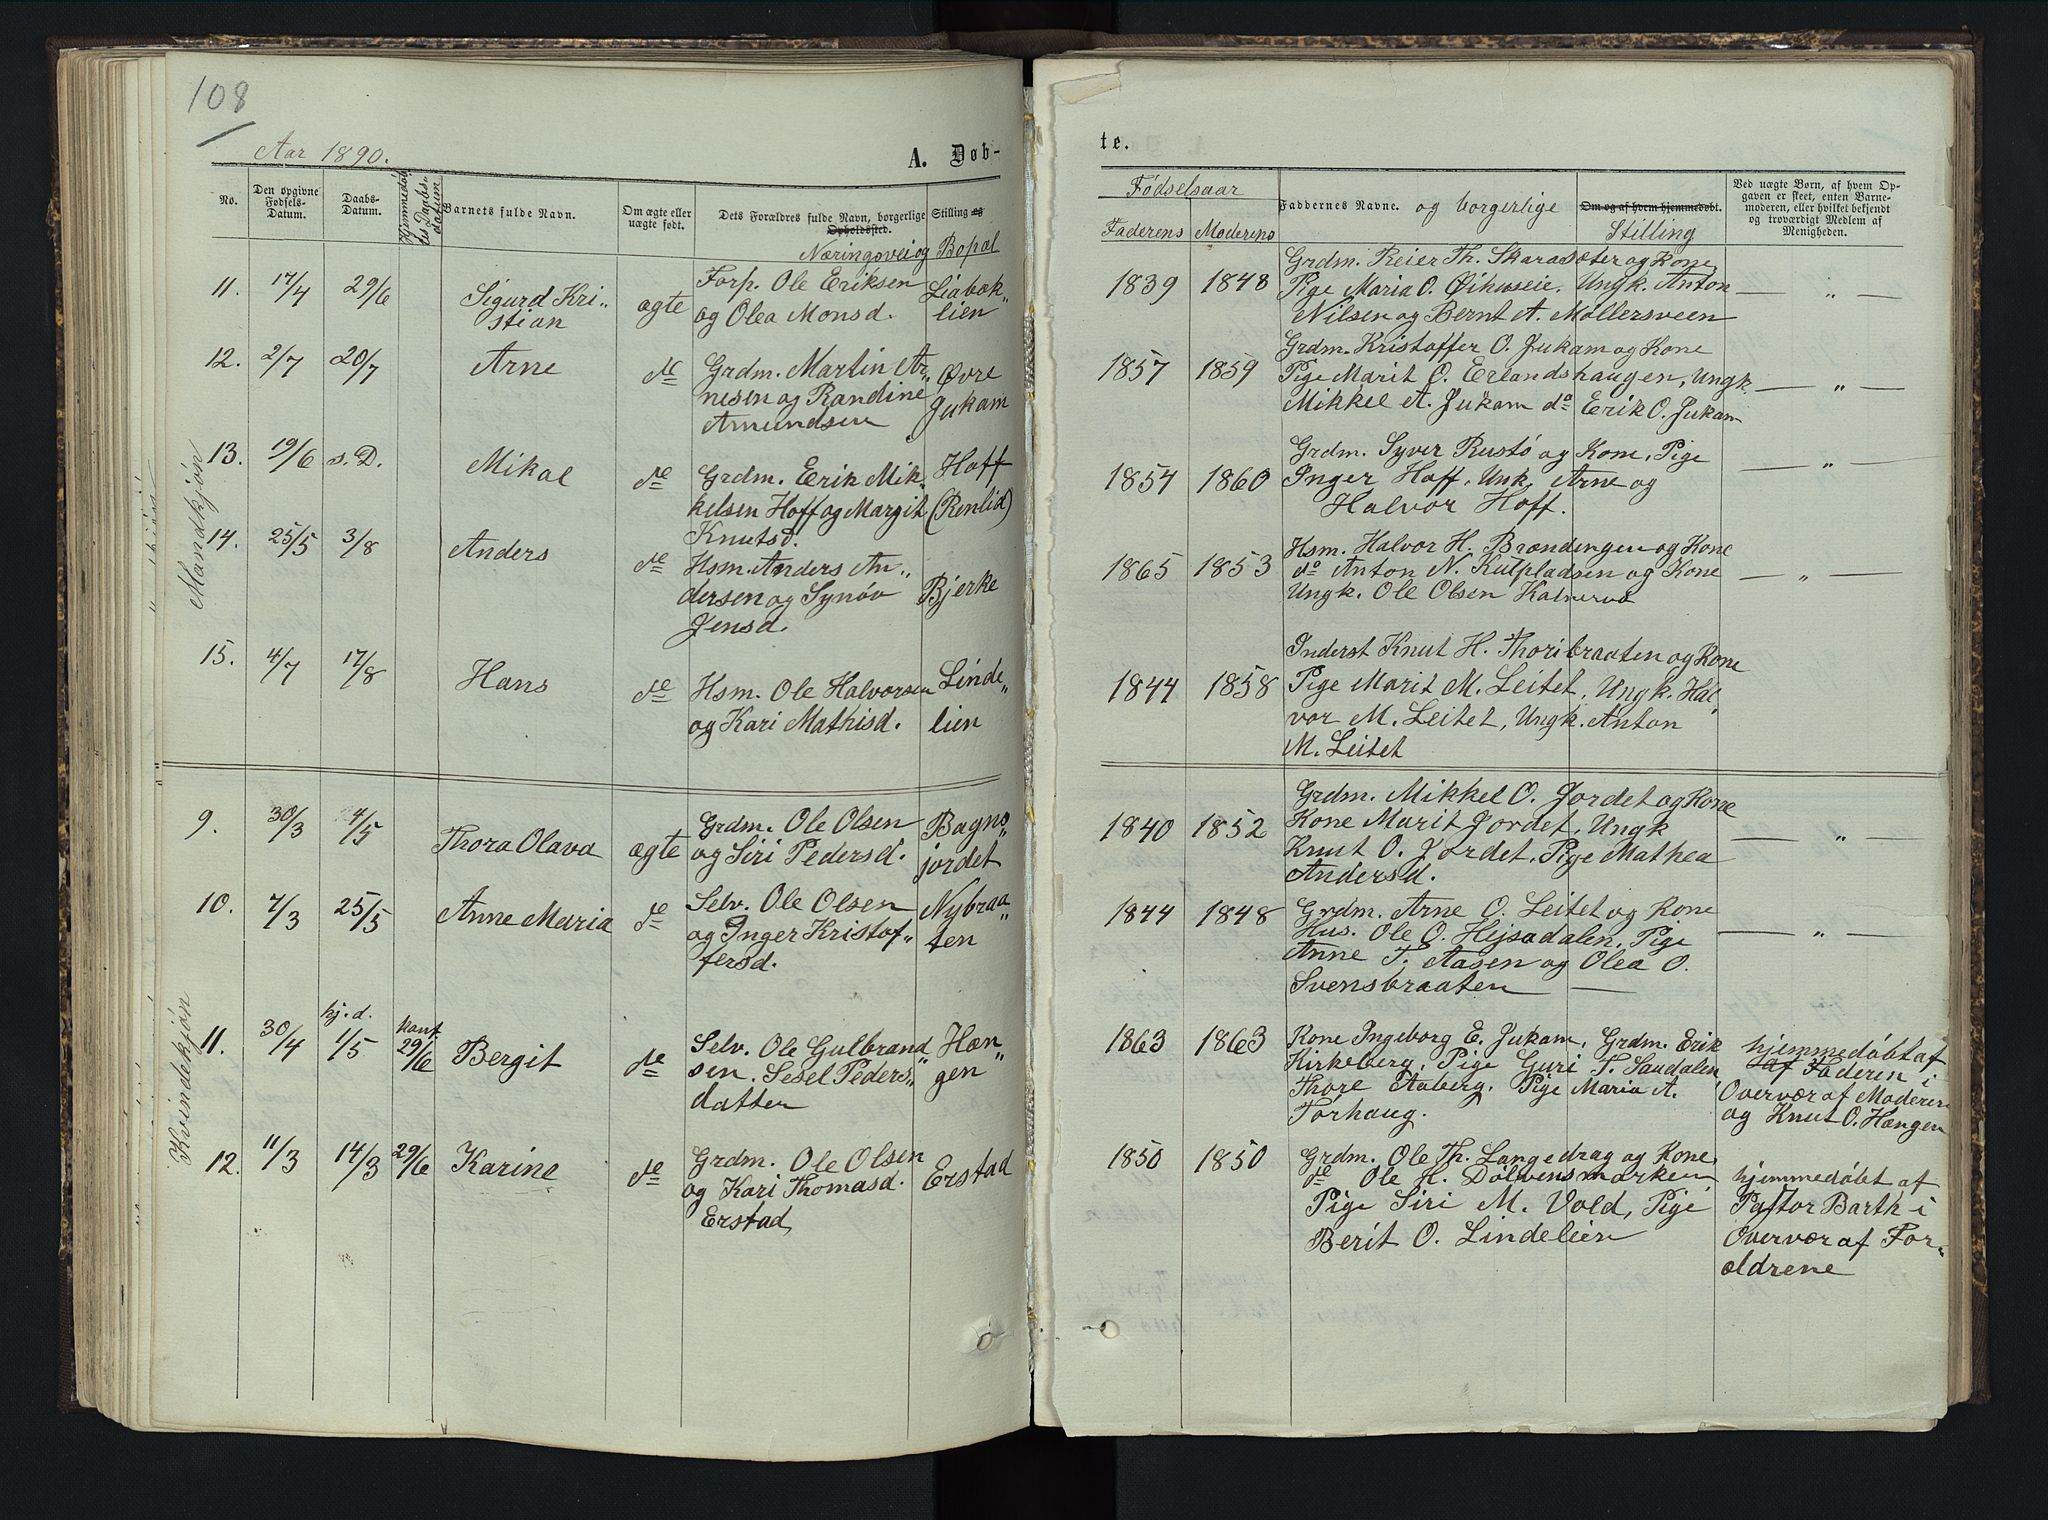 108
Aar 1890.
A. Døb-
No.
Den opgivne Fødsels-Datum.
Daabs-Datum.
Hjemmedøbtes Daabsdatum
Barnets fulde Navn.
Om ægte eller uægte født.
Dets Forældres fulde Navn, borgerlige Stilling og Opholdssted.
Næringsvei og Bopæl
Mandkjøn
11. 17/4 29/6 Sigurd Kri-
stian
ægte
Forp. Ole Eriksen
og Olea Monsd.
Liabøk-
lien
12. 2/7 20/7 Arne
do
Grdm. Martin Ar-
nesen og Randine
Amundsen
Øvre
Jukam
13. 19/6 s. D. Mikal
do
Grdm. Erik Mik-
kelsen Hoff og Margit
Knutsd.
Hoff
(Renlid)
14. 25/5 3/8 Anders
do
Hsm. Anders An-
dersen og Synøv
Jensd.
Bjerke
15. 4/7 17/8 Hans
do
Hsm. Ole Halvorsen
og Kari Mathisd.
Linde-
lien
Kvindekjøn
9. 30/3 4/5 Thora Olava
ægte
Grdm. Ole Olsen
og Siri Pedersd.
Bagns-
jordet
10. 7/3 25/5 Anne Maria
do
Selv. Ole Olsen
og Inger Kristof-
fersd.
Nybraa-
ten
11. 30/4 hj. d. 1/5 29/6 Bergit
do
Selv. Ole Gulbrand-
sen. Sesel Peders-
datter
Hæn-
gen
12. 11/3 14/3 29/6 Karine
do
Grdm. Ole Olsen
og Kari Thomasd.
Erstad,
Erstad
te.
Fødselsaar
Faderens Moderens
Faddernes Navne. og borgerlige
Om og af hvem hjemmedøbt.
Stilling
Ved uægte Børn, af hvem Op-
gaven er skeet, enten Barne-
moderen, eller hvilket bekjendt
og troværdigt Medlem af
Menigheden.
1839 1848
Grdm. Reier Th. Skarasæter og Kone
Pige Maria O. Ungk. Anton
Nilsen og Bernt A. Møllersveen
— „ —
1857 1859
Grdm. Kristoffer O. Jukam og Kone
Pige Marit O. Erlandshaugen, Ungk.
Mikkel A. Jukam do Erik O. Jukam
— „ —
1854 1860
Grdm. Syver Rustø og Kone, Pige
Inger Hoff, Unk. Arne og
Halvor Hoff.
— „ —
1865 1853
Hsm. Halvor H. Brændingen og Kone
do Anton N. og Kone
Ungk. Ole Olsen
— „ —
1844 1858
Inderst Knut H. Thoribraaten og Kone
Pige Marit M. Leitet, Ungk. Hal-
vor M. Leitet, Ungk. Anton
M. Leitet
1840 1852
Grdm. Mikkel O. Jordet og Kone
Kone Marit Jordet, Ungk
Knut O. Jordet, Pige Mathea
Andersd.
— „ —
1844 1848
Grdm. Arne O. Leitet og Kone
Hus. Ole O. Hejsadalen, Pige
Anne T. Aasen og Olea O.
Svensbraaten —
— „ —
1863 1863
Kone Ingeborg E. Jukam, Grdm. Erik
Kirkeberg, Pige Guri T. Saudalen,
Thore Aaberg, Pige Maria A.
Torhaug.
hjemmedøbt af
af Faderen i
Overvær af Moderen
og Knut O. Hængen
1850 1850
Grdm. Ole Th. Langedrag og Kone,
do Ole H. Dølvensmarken
Pige Siri M. Vold, Pige
Berit O. Lindelien
hjemmedøbt af
Pastor Barth i
Overvær af For-
ældrene